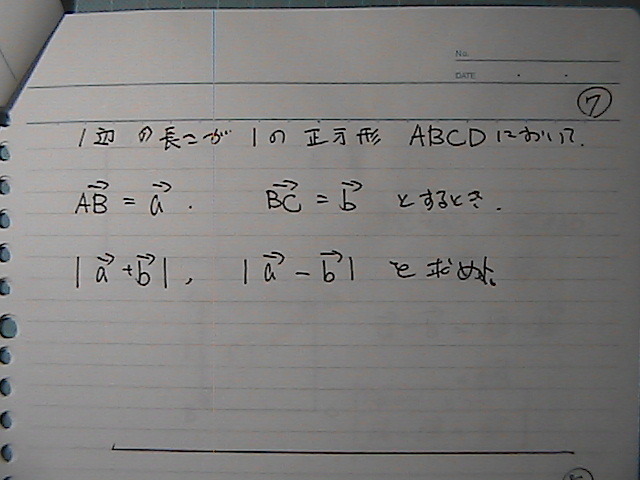 No.
DATE
⑦
1辺の長さが1の正方形 ABCDにおいて.
AB = a . BC = b とするとき.
|a + b| , |a - b| を求めよ